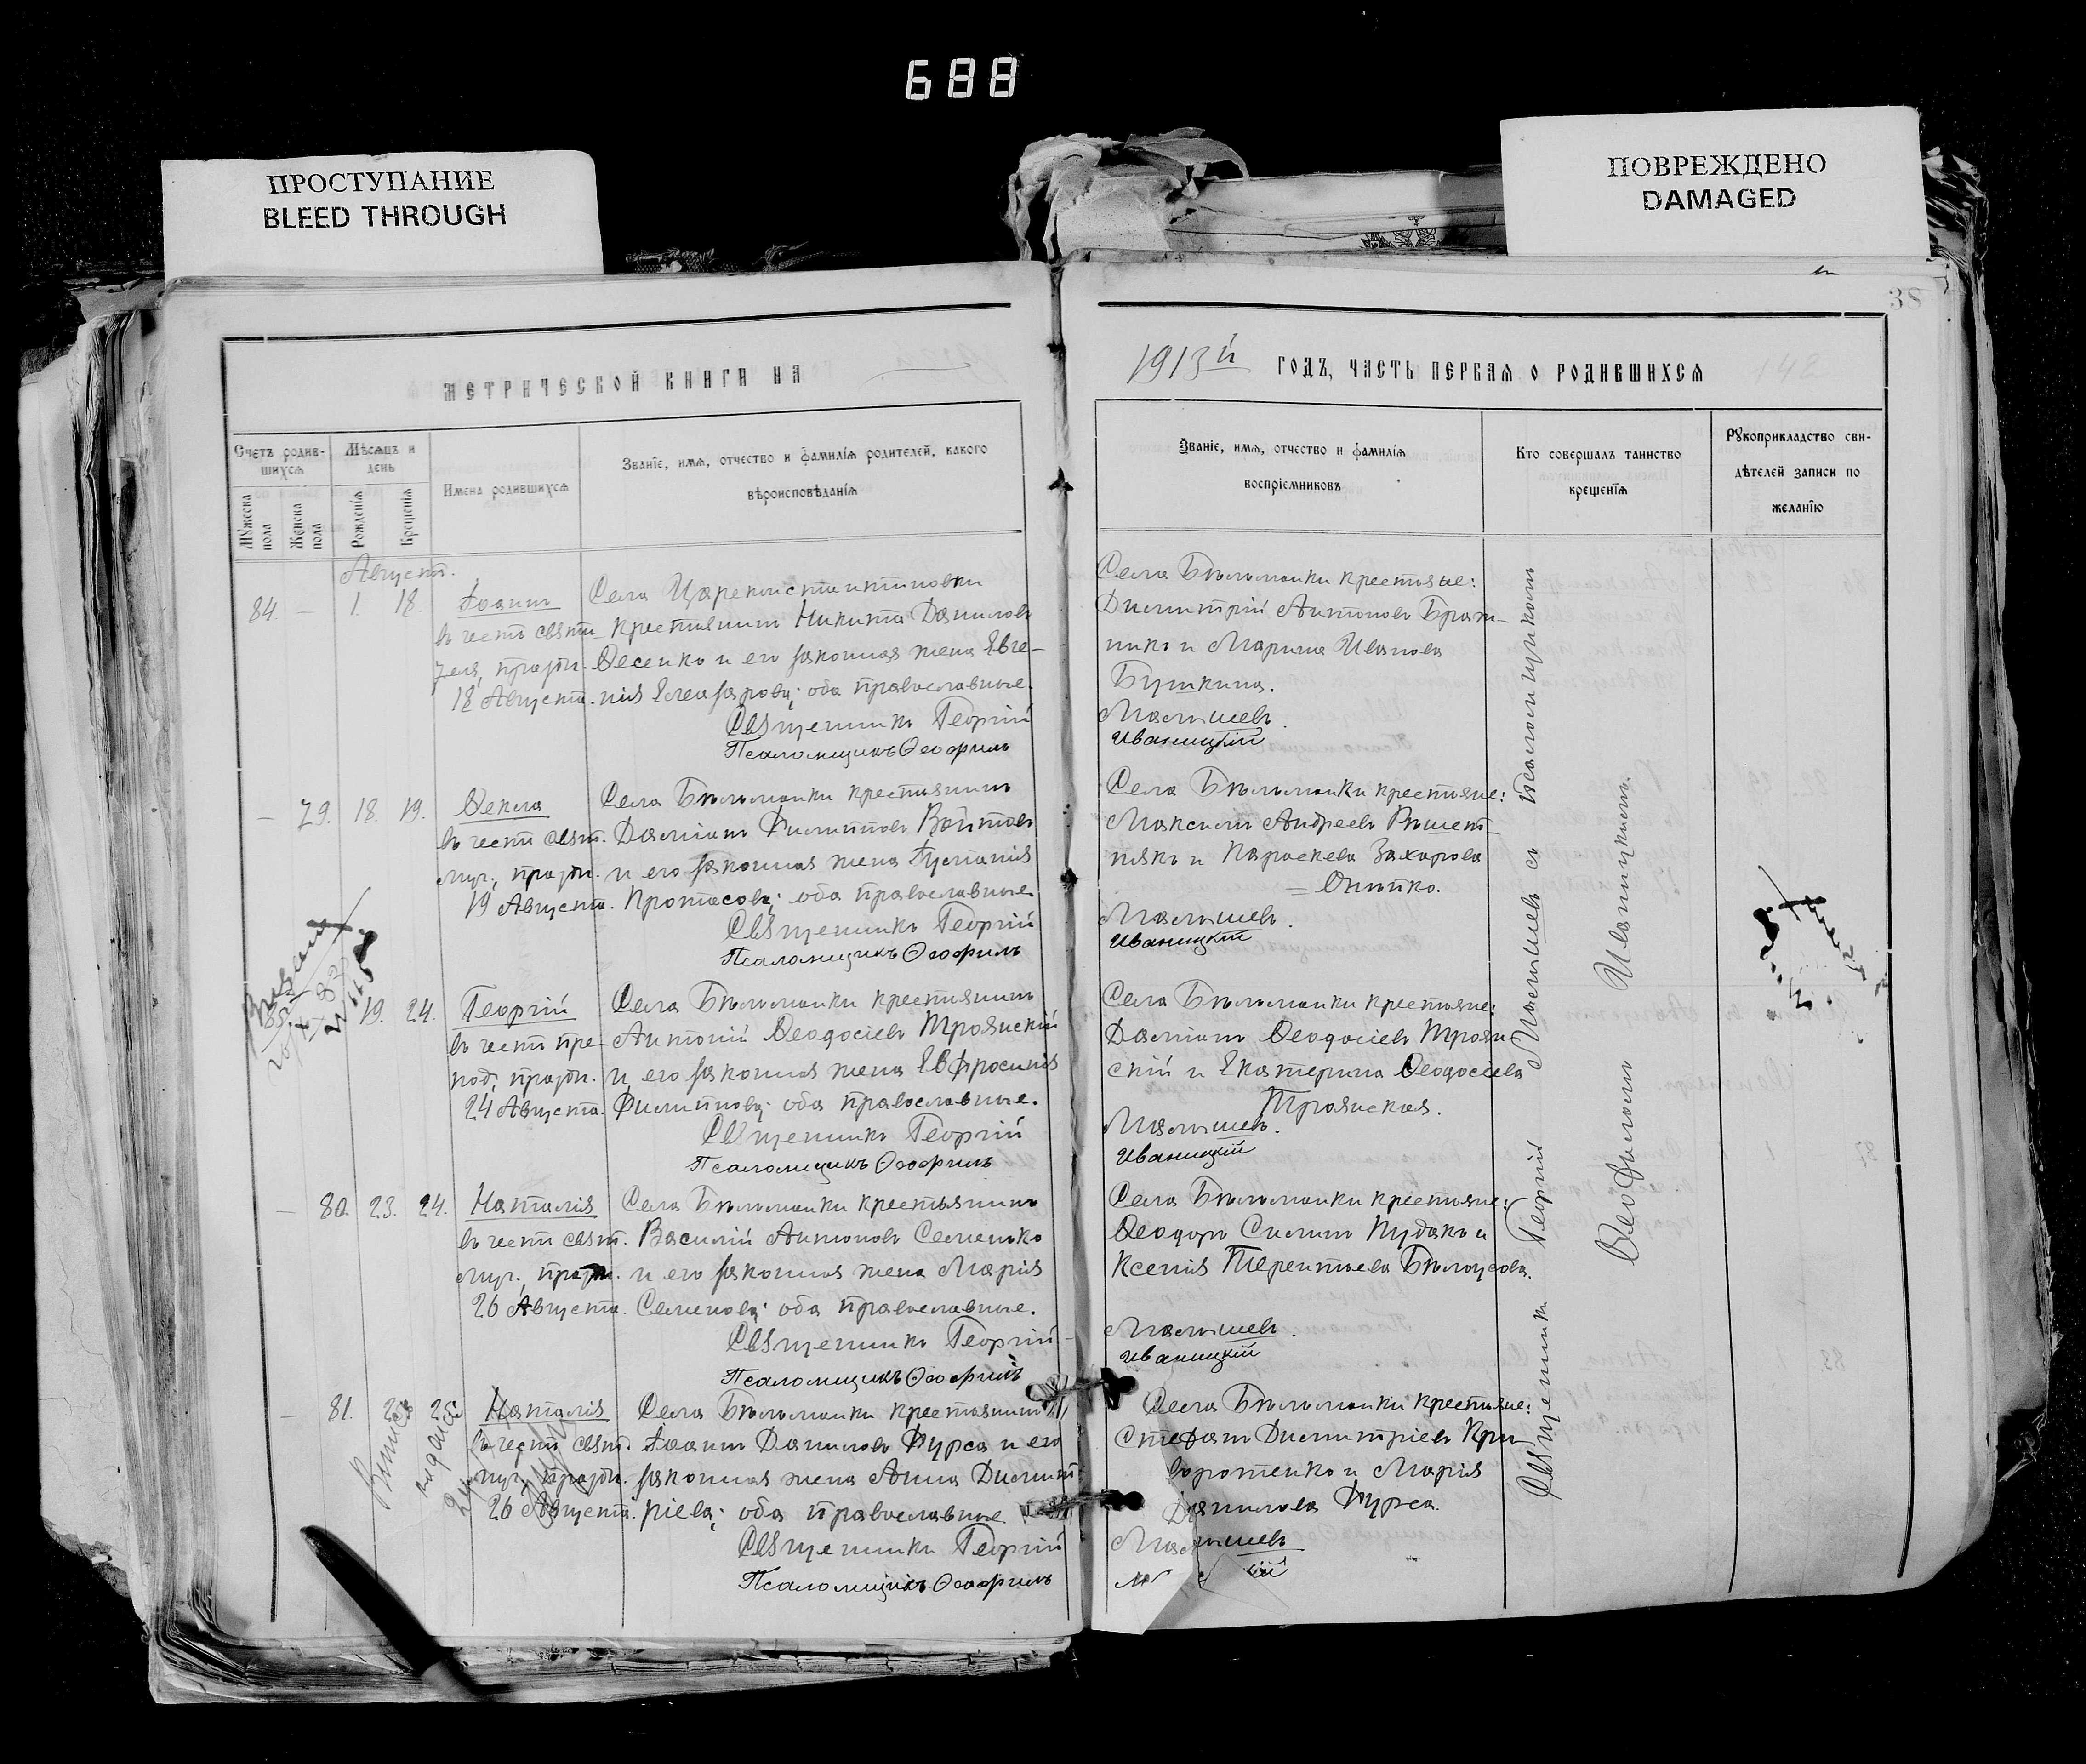 688
ПРОСТУПАНИЕ
BLEED THROUGH
ПОВРЕЖДЕНО
DAMAGED
38
МЕТРИЧЕСКОЙ КНИГИ НА
1913й ГОДЪ, ЧАСТЬ ПЕРВАЯ О РОДИВШИХСЯ
Счетъ родив-
шихся
Мужеска пола
Женска пола
Мѣсяцъ и
день
Рожденія
Крещенія
Имена родившихся
Званіе, имя, отчество и фамилія родителей, какого
вѣроисповѣданія
Званіе, имя, отчество и фамилія
воспріемниковъ
Кто совершалъ таинство
крещенія
Рукоприкладство сви-
дѣтелей записи по
желанію
Августъ.
84. — 1. 18.
Іоаннъ
въ честь святи-
теля, праздн.
18 Августа.
Села Цареконстантиновки
крестьянинъ Никита Даниловъ
Ѳесенко и его законная жена Евге-
нія Елеазарова; оба православные.
Священникъ Георгій
Псаломщикъ Ѳеофилъ
Села Бѣльманки крестьяне:
Димитрій Антоновъ Браж-
никъ и Марина Иванова
Бушкина.
Малышевъ.
Иваницкій
— 79. 18. 19.
Ѳекла
въ честь свят.
муч., праздн.
19 Августа.
Села Бѣльманки крестьянинъ
Даміанъ Филипповъ Войтовъ
и его законная жена Іуліанія
Протасова; оба православные.
Священникъ Георгій
Псаломщикъ Ѳеофилъ
Села Бѣльманки крестьяне:
Максимъ Андреевъ Рѣшет-
някъ и Параскева Захарова
Онѣпко.
Малышевъ.
Иваницкій
85. 19. 24.
Георгій
въ честь пре-
под., праздн.
24 Августа.
Села Бѣльманки крестьянинъ
Антоній Ѳеодосіевъ Троянскій
и его законная жена Евфросинія
Филиппова; оба православные.
Священникъ Георгій
Псаломщикъ Ѳеофилъ
Села Бѣльманки крестьяне:
Даміанъ Ѳеодосіевъ Троян-
скій и Екатерина Ѳеодосіева
Троянская.
Малышевъ.
Иваницкій
— 80. 23. 24.
Наталія
въ честь свят.
муч., праздн.
26 Августа.
Села Бѣльманки крестьянинъ
Василій Антоновъ Семенько
и его законная жена Марія
Семенова; оба православные.
Священникъ Георгій
Псаломщикъ Ѳеофилъ
Села Бѣльманки крестьяне:
Ѳеодоръ Симинъ Кудакъ и
Ксенія Терентьева Бѣлоусова.
Малышевъ.
Иваницкій
— 81. 25. 25.
Наталія
въ честь свят.
муч., праздн.
26 Августа.
Села Бѣльманки крестьянинъ
Іоаннъ Даниловъ Фурса и его
законная жена Анна Димит-
ріева; оба православные.
Священникъ Георгій
Псаломщикъ Ѳеофилъ
Села Бѣльманки крестьяне:
Стефанъ Димитріевъ Кри-
воротенко и Марія
Данилова Фурса.
Малышевъ
Священникъ Георгій Малышевъ съ псаломщикомъ
Ѳеофиломъ Иваницкимъ.